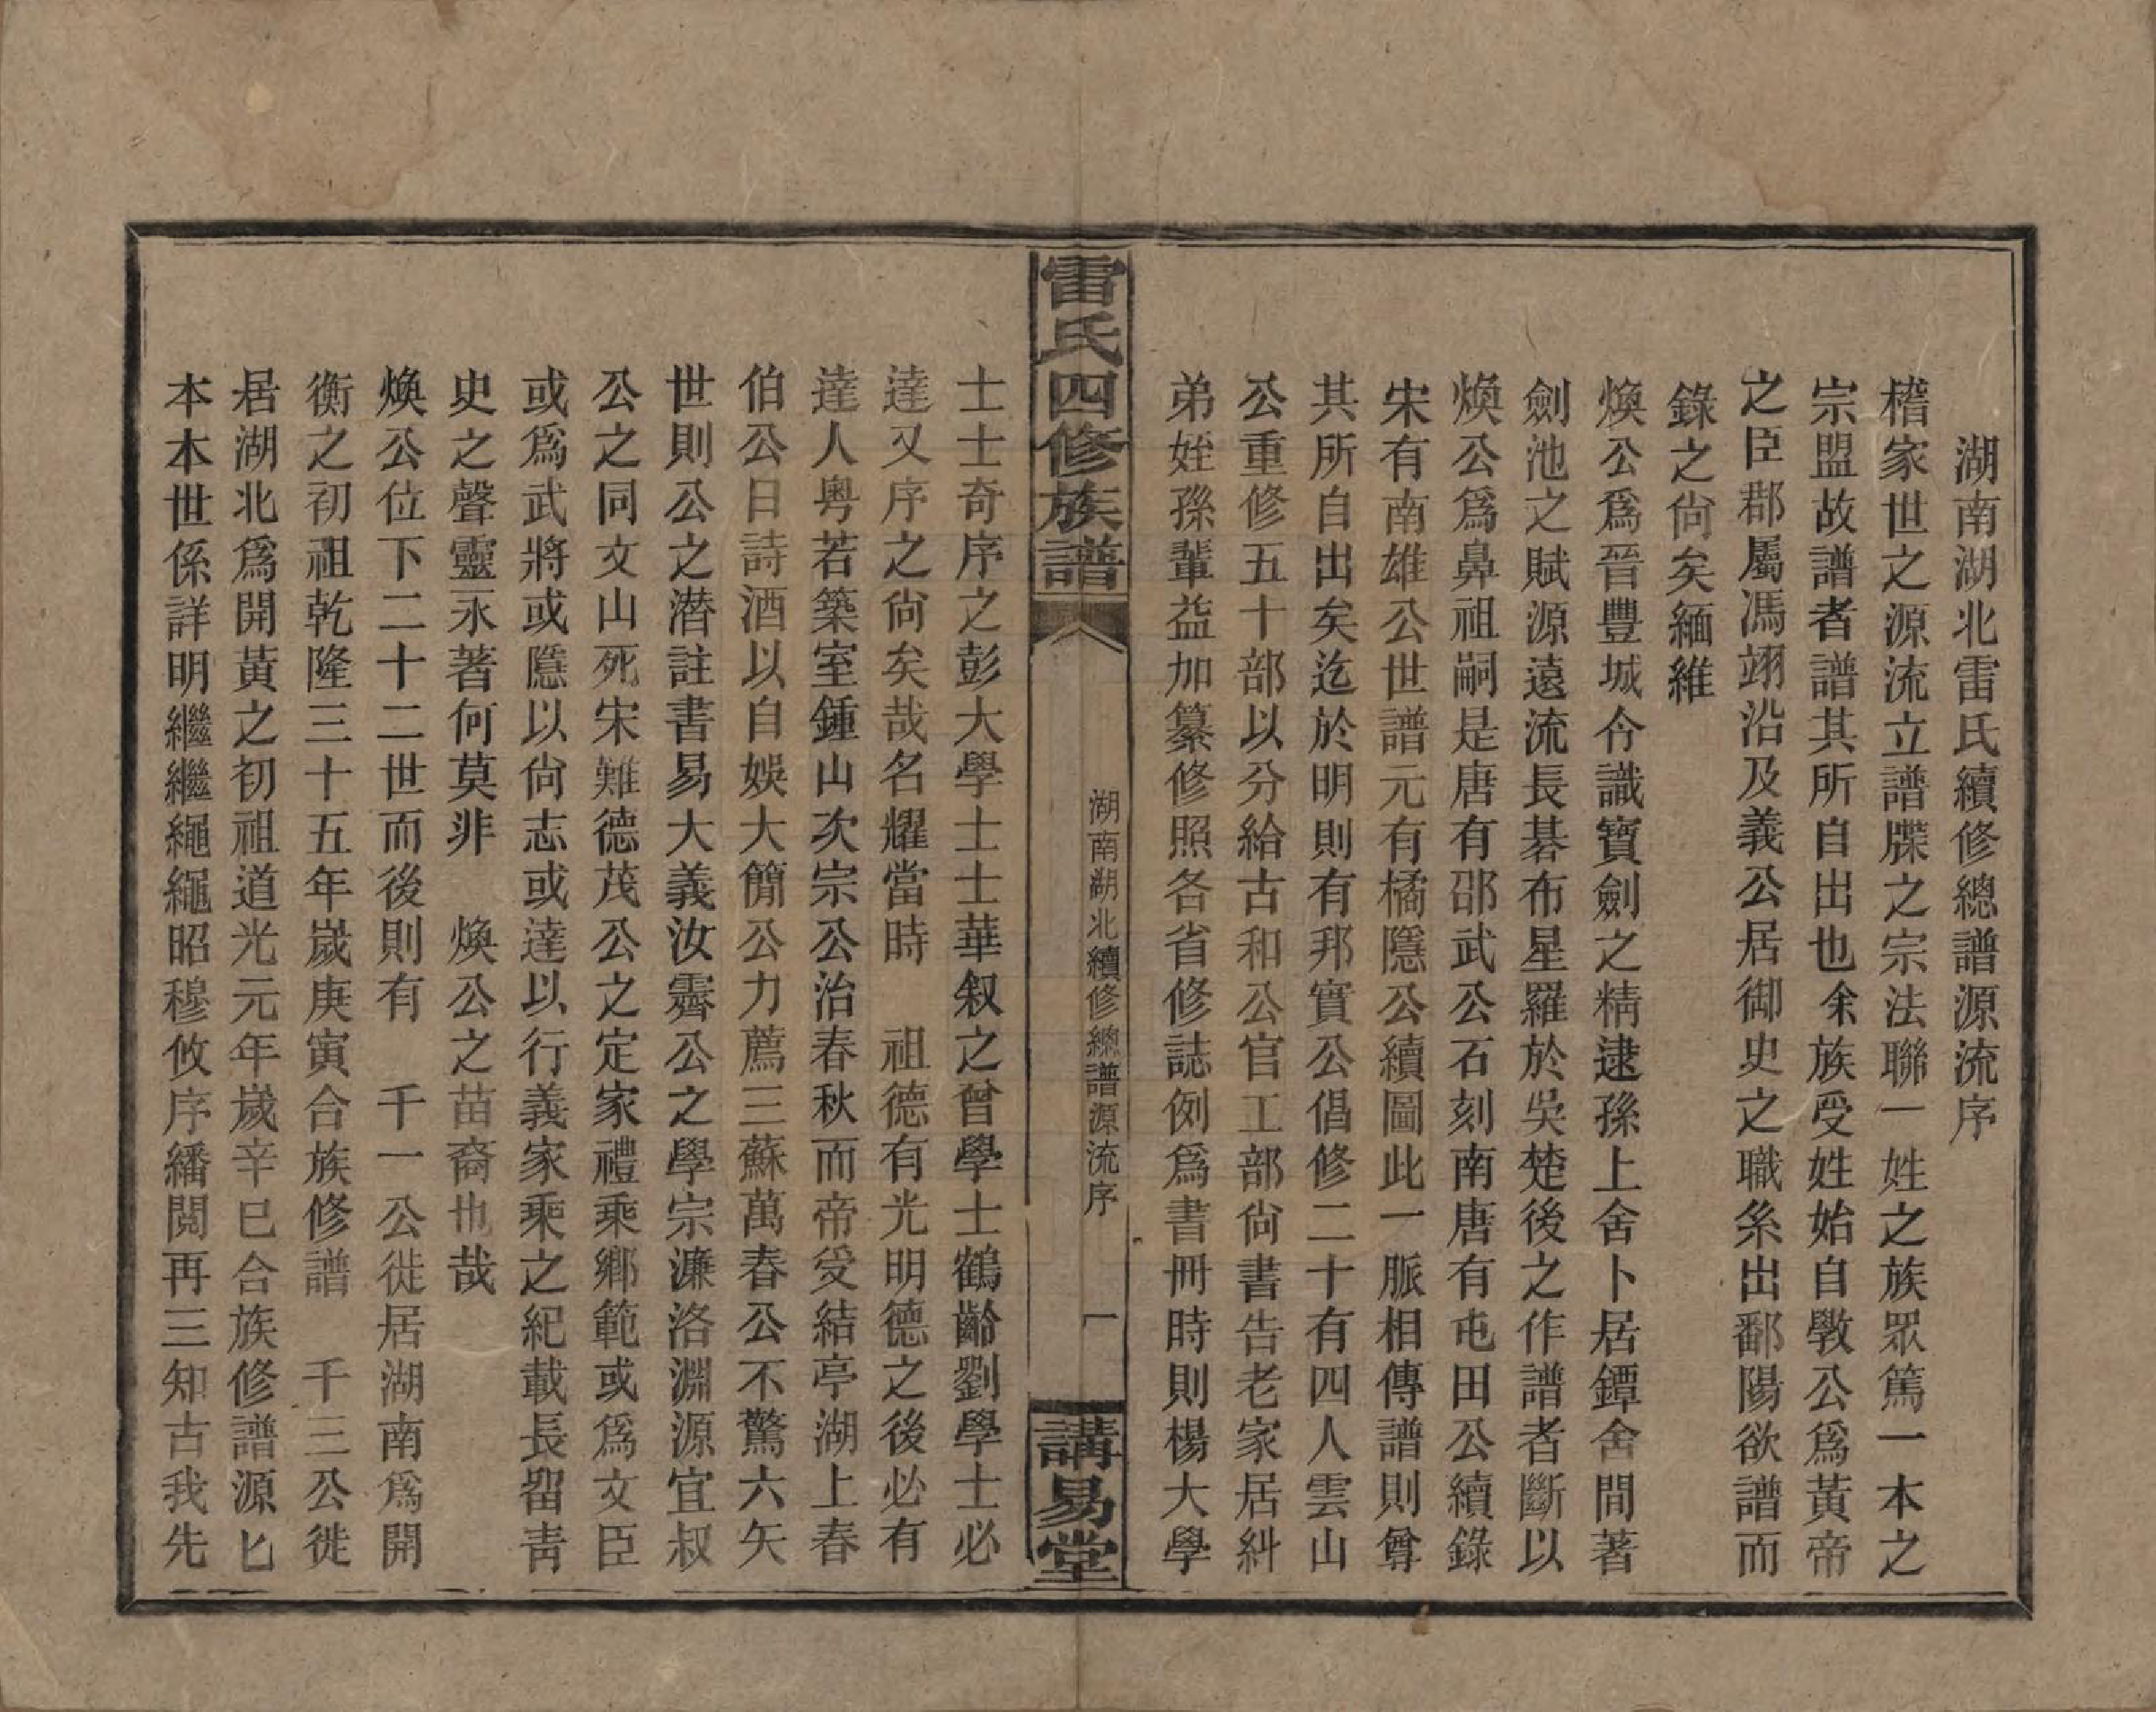 湖南湖北雷氏續修總譜源流序
稽家世之源流立譜牒之宗法聯一姓之族眾篤一本之
宗盟故譜者譜其所自出也余族受姓始自斅公爲黃帝
之臣郡屬馮翊沿及義公居御史之職系出鄱陽欲譜而
錄之尙矣緬維
煥公爲晉豐城令識寶劍之精逮孫上舍卜居鐔舍間著
劍池之賦源遠流長碁布星羅於吳楚後之作譜者斷以
煥公爲鼻祖嗣是唐有邵武公石刻南唐有屯田公續錄
宋有南雄公世譜元有橘隱公續圖此一脈相傳譜則尊
其所自出矣迄於明則有邦實公倡修二十有四人雲山
公重修五十部以分給古和公官工部尙書告老家居糾
弟姪孫輩益加纂修照各省修誌例爲書冊時則楊大學
雷氏四修族譜
湖南湖北續修總譜源流序
一
講易堂
士士奇序之彭大學士士華叙之曾學士鶴齡劉學士必
達又序之尙矣哉名耀當時 祖德有光明德之後必有
達人粵若築室鍾山次宗公治春秋而帝受結亭湖上春
伯公日詩酒以自娛大簡公力薦三蘇萬春公不驚六矢
世則公之潛註書易大義汝霽公之學宗濂洛淵源宜叔
公之同文山死宋難德茂公之定家禮乘鄉範或爲文臣
或爲武將或隱以尙志或達以行義家乘之紀載長留靑
史之聲靈永著何莫非 煥公之苗裔也哉
煥公位下二十二世而後則有 千一公徙居湖南爲開
衡之初祖乾隆三十五年歲庚寅合族修譜 千三公徙
居湖北爲開黃之初祖道光元年歲辛巳合族修譜源匕
本本世係詳明繼繼繩繩昭穆攸序繙閱再三知古我先